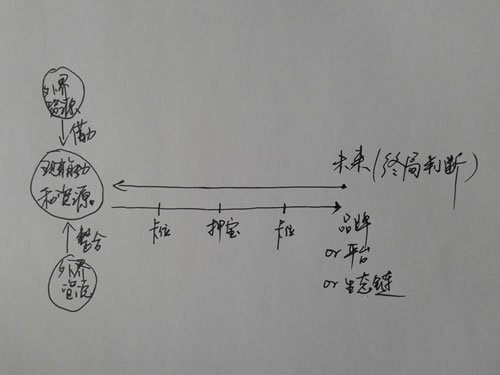 外界
资源
借力
现有能力
和资源。
整合
外界
资源
未来(终局判断)
卡位
押宝
卡位
品牌
or 平台
or 生态链